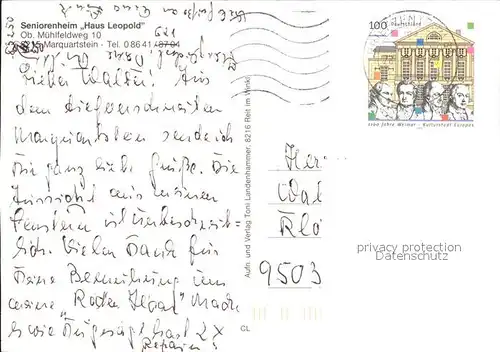 Seniorenheim „Haus Leopold"
Ob. Mühlfeldweg 10
Marquartstein - Tel. 0 86 41/87 04
621
Lieber Walter! Aus
dem tiefverschneiten
Marquartstein sende ich
Dir ganz liebe Grüße. Die
Aussicht aus meinem
Fenster ist unbeschreib-
lich. Vielen Dank für
Deine Bemühung um
meine
es wie Du gesagt hast 2 X
Aufn. und Verlag Toni Landenhammer, 8216 Reit im Winkl
CL
100
Deutschland
1100 Jahre Weimar - Kulturstadt Europas
Her
Wal
Klo
9503
privacy protection
Datenschutz